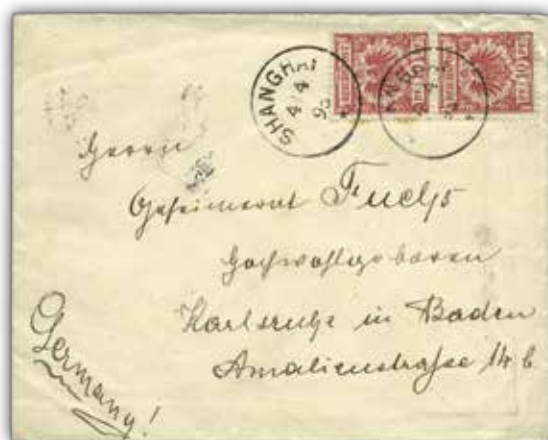 SHANGHAI
4
4
Herrn
Geheimerat Fuchs
Hochwohlgeboren
Karlsruhe in Baden
Amalienstraße 14 b
Germany!